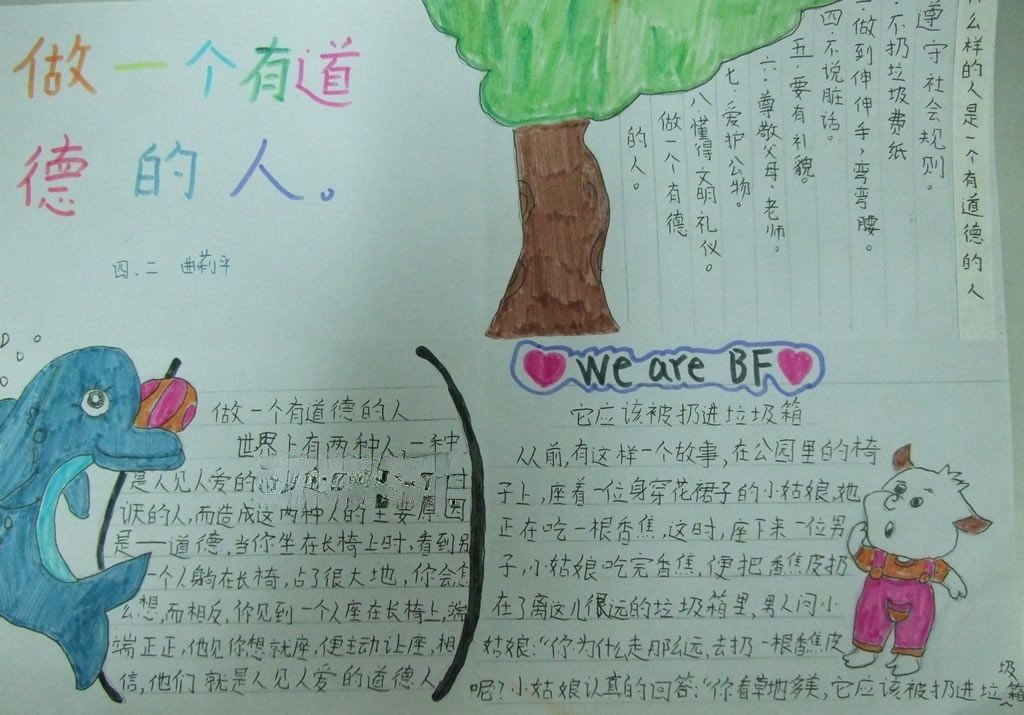 做一个有道
德的人。
四.二 曲莉平
么样的人是一个有道德的人
遵守社会规则。
不扔垃圾费纸
做到伸伸手,弯弯腰。
四.不说脏话。
五.要有礼貌。
六.尊敬父母、老师。
七.爱护公物。
八懂得文明礼仪。
做一个有德
的人。
做一个有道德的人
世界上有两种人,一种
是人见人爱的
厌的人,而造成这两种人的主要原因
是——道德,当你坐在长椅上时,看到另
一个人躺在长椅,占了很大地,你会怎
么想,而相反,你见到一个人座在长椅上,端
端正正,他见你想就座,便主动让座,相
信,他们就是人见人爱的道德人
We are BF
它应该被扔进垃圾箱
从前,有这样一个故事,在公园里的椅
子上,座着一位身穿花裙子的小姑娘,她
正在吃一根香焦,这时,座下来一位男
子,小姑娘吃完香焦,便把香焦皮扔
在了离这儿很远的垃圾箱里,男人问小
姑娘:“你为什么走那么远,去扔一根香焦皮
呢?小姑娘认真的回答:“你看草地多美,它应该被扔进垃圾箱